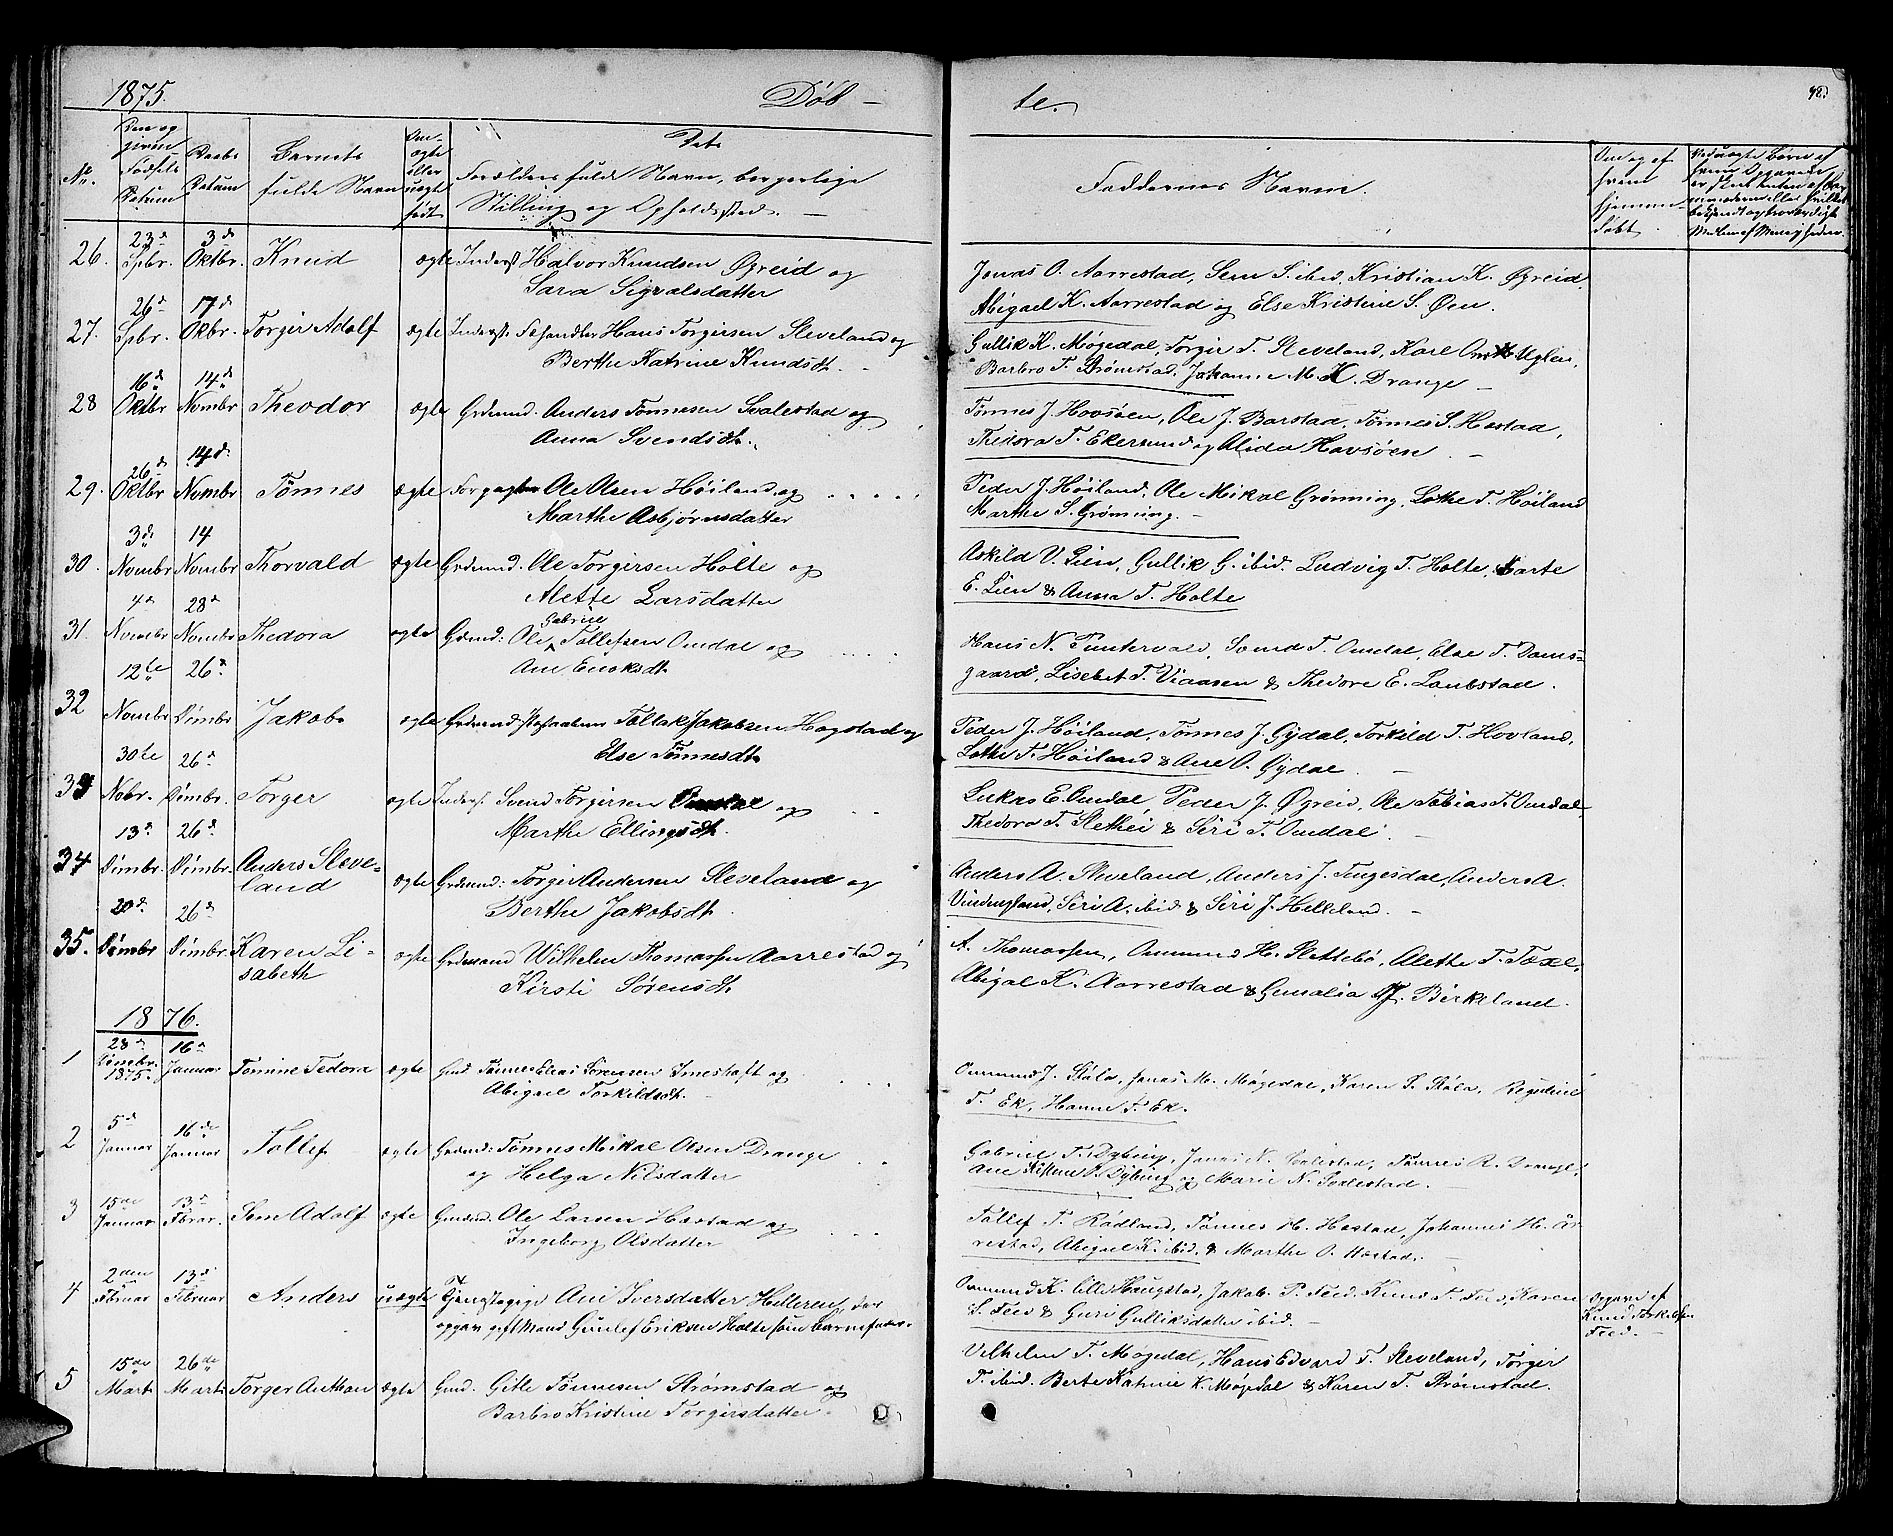 1875.
Døb-
te.
98.
No.
Den og
given
Fødsels
Datum
Daabs
Datum
Barnets
fulde Navn
Om
ægte
eller
uægte
født
Dets
Forældres fulde Navn, borgerlige
Stilling og Opholdssted.
Faddernes Navne.
Om og af
hvem
hjemme-
døbt.
26.
23d
Spbr.
3d
Oktbr.
Knud
ægte
Inderst Halvor Knudsen Øgreid og
Sara Sigvalsdatter
Jonas O. Aarrestad, Sem S. ibid, Kristian K. Øgreid,
Abigael K. Aarrestad og Else Kristine S. Øen.
27.
26d
Spbr.
17d
Okbr.
Torgir Adolf
ægte
Inderst. Fehandler Hans Torgirsen Sleveland og
Berthe Katrine Knudsdt.
Gullik K. Møgedal, Torgir T. Sleveland, Karl Uglen,
Barbro T. Strømstad, Johanne M. K. Drange
28
16d
Oktbr
14d
Nombr
Theodor
ægte
Grdmnd. Anders Tønnesen Svalestad og
Anna Svendsdt.
Tønnes J. Hovsøen, Ole J. Barstad, Tønnes S. Hæstad,
Thedora T. Ekersund og Alida Hovsøen
29.
26d
Oktbr
14d.
Nombr
Tønnes
ægte
Forpagter Ole Olsen Høiland og
Marthe Asbjørnsdatter
Peder J. Høiland, Ole Mikal Grønning, Lothe T. Høiland
Marthe S. Grønning.
30.
3d
Nombr
14
Nombr
Thorvald
ægte
Grdmnd. Ole Torgirsen Holte og
Alette Larsdatter
Askild V. Lien, Gullik G. ibid. Ludvig T. Holte, Marte
E. Lien & Anna T. Holte
31.
4d
Nombr
28d
Nombr
Thedora
ægte
Gabriel
Grdmnd: Ole Tollefsen Omdal og
Ane Enoksdt.
Hans N. Puntervold, Svend T. Omdal, Else T. Dams-
gaard, Lisebet T. Viaasen & Thedore E. Løubstad.
32
12te
Nombr
26d
Dšmbr
Jakob
ægte
Grdmand Tollak Jakobsen Hogstad og
Else Tønnesdt.
Peder J. Høiland, Tønnes J. Gydal, Torkild T. Hovland,
Lothe T. Høiland & Ane O. Gydal.
33
30te
Nobr.
26d
Dšmbr.
Torger
ægte
Inderst. Svend Torgirsen Omdal og
Marthe Ellingsdt.
Lukas E. Omdal, Peder J. Øgreid, Ole Tobias T. Omdal,
Thedora T. Slethei & Siri T. Omdal.
34
13d
Dšmbr.
26d
Dšmbr.
Anders Sleve-
land
ægte
Grdmnd: Torgir Andersen Sleveland og
Berthe Jakobsdt.
Anders A. Sleveland, Anders J. Tengesdal, Anders A.
Vindingland, Siri A. ibid & Siri J. Helleland.
35.
20d.
Dšmbr
26d
Dšmbr.
Karen Li-
sabeth
ægte
Grdmand Wilhelm Thomassen Aarrestad og
Kirsti Sørensdt.
A. Thomassen, Ommund H. Slettebø, Alethe T. Foxel,
Abigal K. Aarrestad & Gunalia J. Birkeland.
1876.
1
28d
Dšmbr.
1875.
16d
Januar
Tomine Tedora
ægte
Gmd. Tønnes Elias Sørensen Imeshaft og
Abigael Torkildsdt.
Ommund J. Skåla, Jonas M. Møgedal, Karen S. Skåla, Regeline
T. Ek, Hanne T. Ek.
2
5d
Januar
16de
Januar
Tollef
ægte
Grdmd: Tønnes Mikal Olsen Drange
og Helga Nilsdatter
Gabriel T. Dybing, Jonas N. Svalestad, Tønnes R. Drange,
Ane Dybing og Marie N. Svalestad.
3
15de
Januar
13d
Febrar.
Sem Adolf
ægte
Grdmnd. Ole Larsen Hæstad og
Ingeborg Olsdatter
Tollef T. Rødland, Tønnes H. Hæstad, Johannes H. År-
restad, Abigael K. ibid. & Marthe O. Hæstad.
4
2den
Februar
13d
Februar
Anders
uægte
Tjenestepige Ane Iversdatter Helleren, der
opgav gift Mand Gunlef Eriksen Holte som barnefader.
Ommund K. lille Haugstad, Jakob P. Feed, Knud T. Feed, Karen
S. Feed & Guri Gulliksdatter ibid.
Opgave af
Knud Torkildsen
Feed.
5
15de
Marts
26de
Marts
Torger Anthon
ægte
Gmd. Gitle Tønnesen Strømstad og
Barbro Kristine Torgirsdatter
Vilhelm T. Møgedal, Hans Edvard T. Sleveland, Torgir
T. ibid. Berte Katrine K. Møgedal & Karen T. Strømstad.